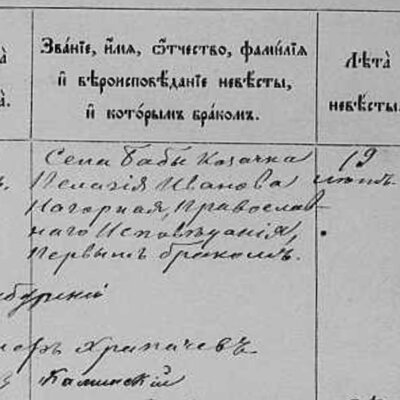 Зва́нїе, и҆́мя, ѻ҆́тчество, фами́лїя
и҆ вѣроисповѣ́данїе невѣ́сты,
и҆ кото́рымъ бра́комъ.
Лѣта̀
невѣ́сты.
Села Бабы Козачка
Пелагія Иванова
Нагорная, Православ-
наго Исповѣданія,
Первымъ бракомъ.
19
лѣтъ.
Хрипачевъ
Каминскій